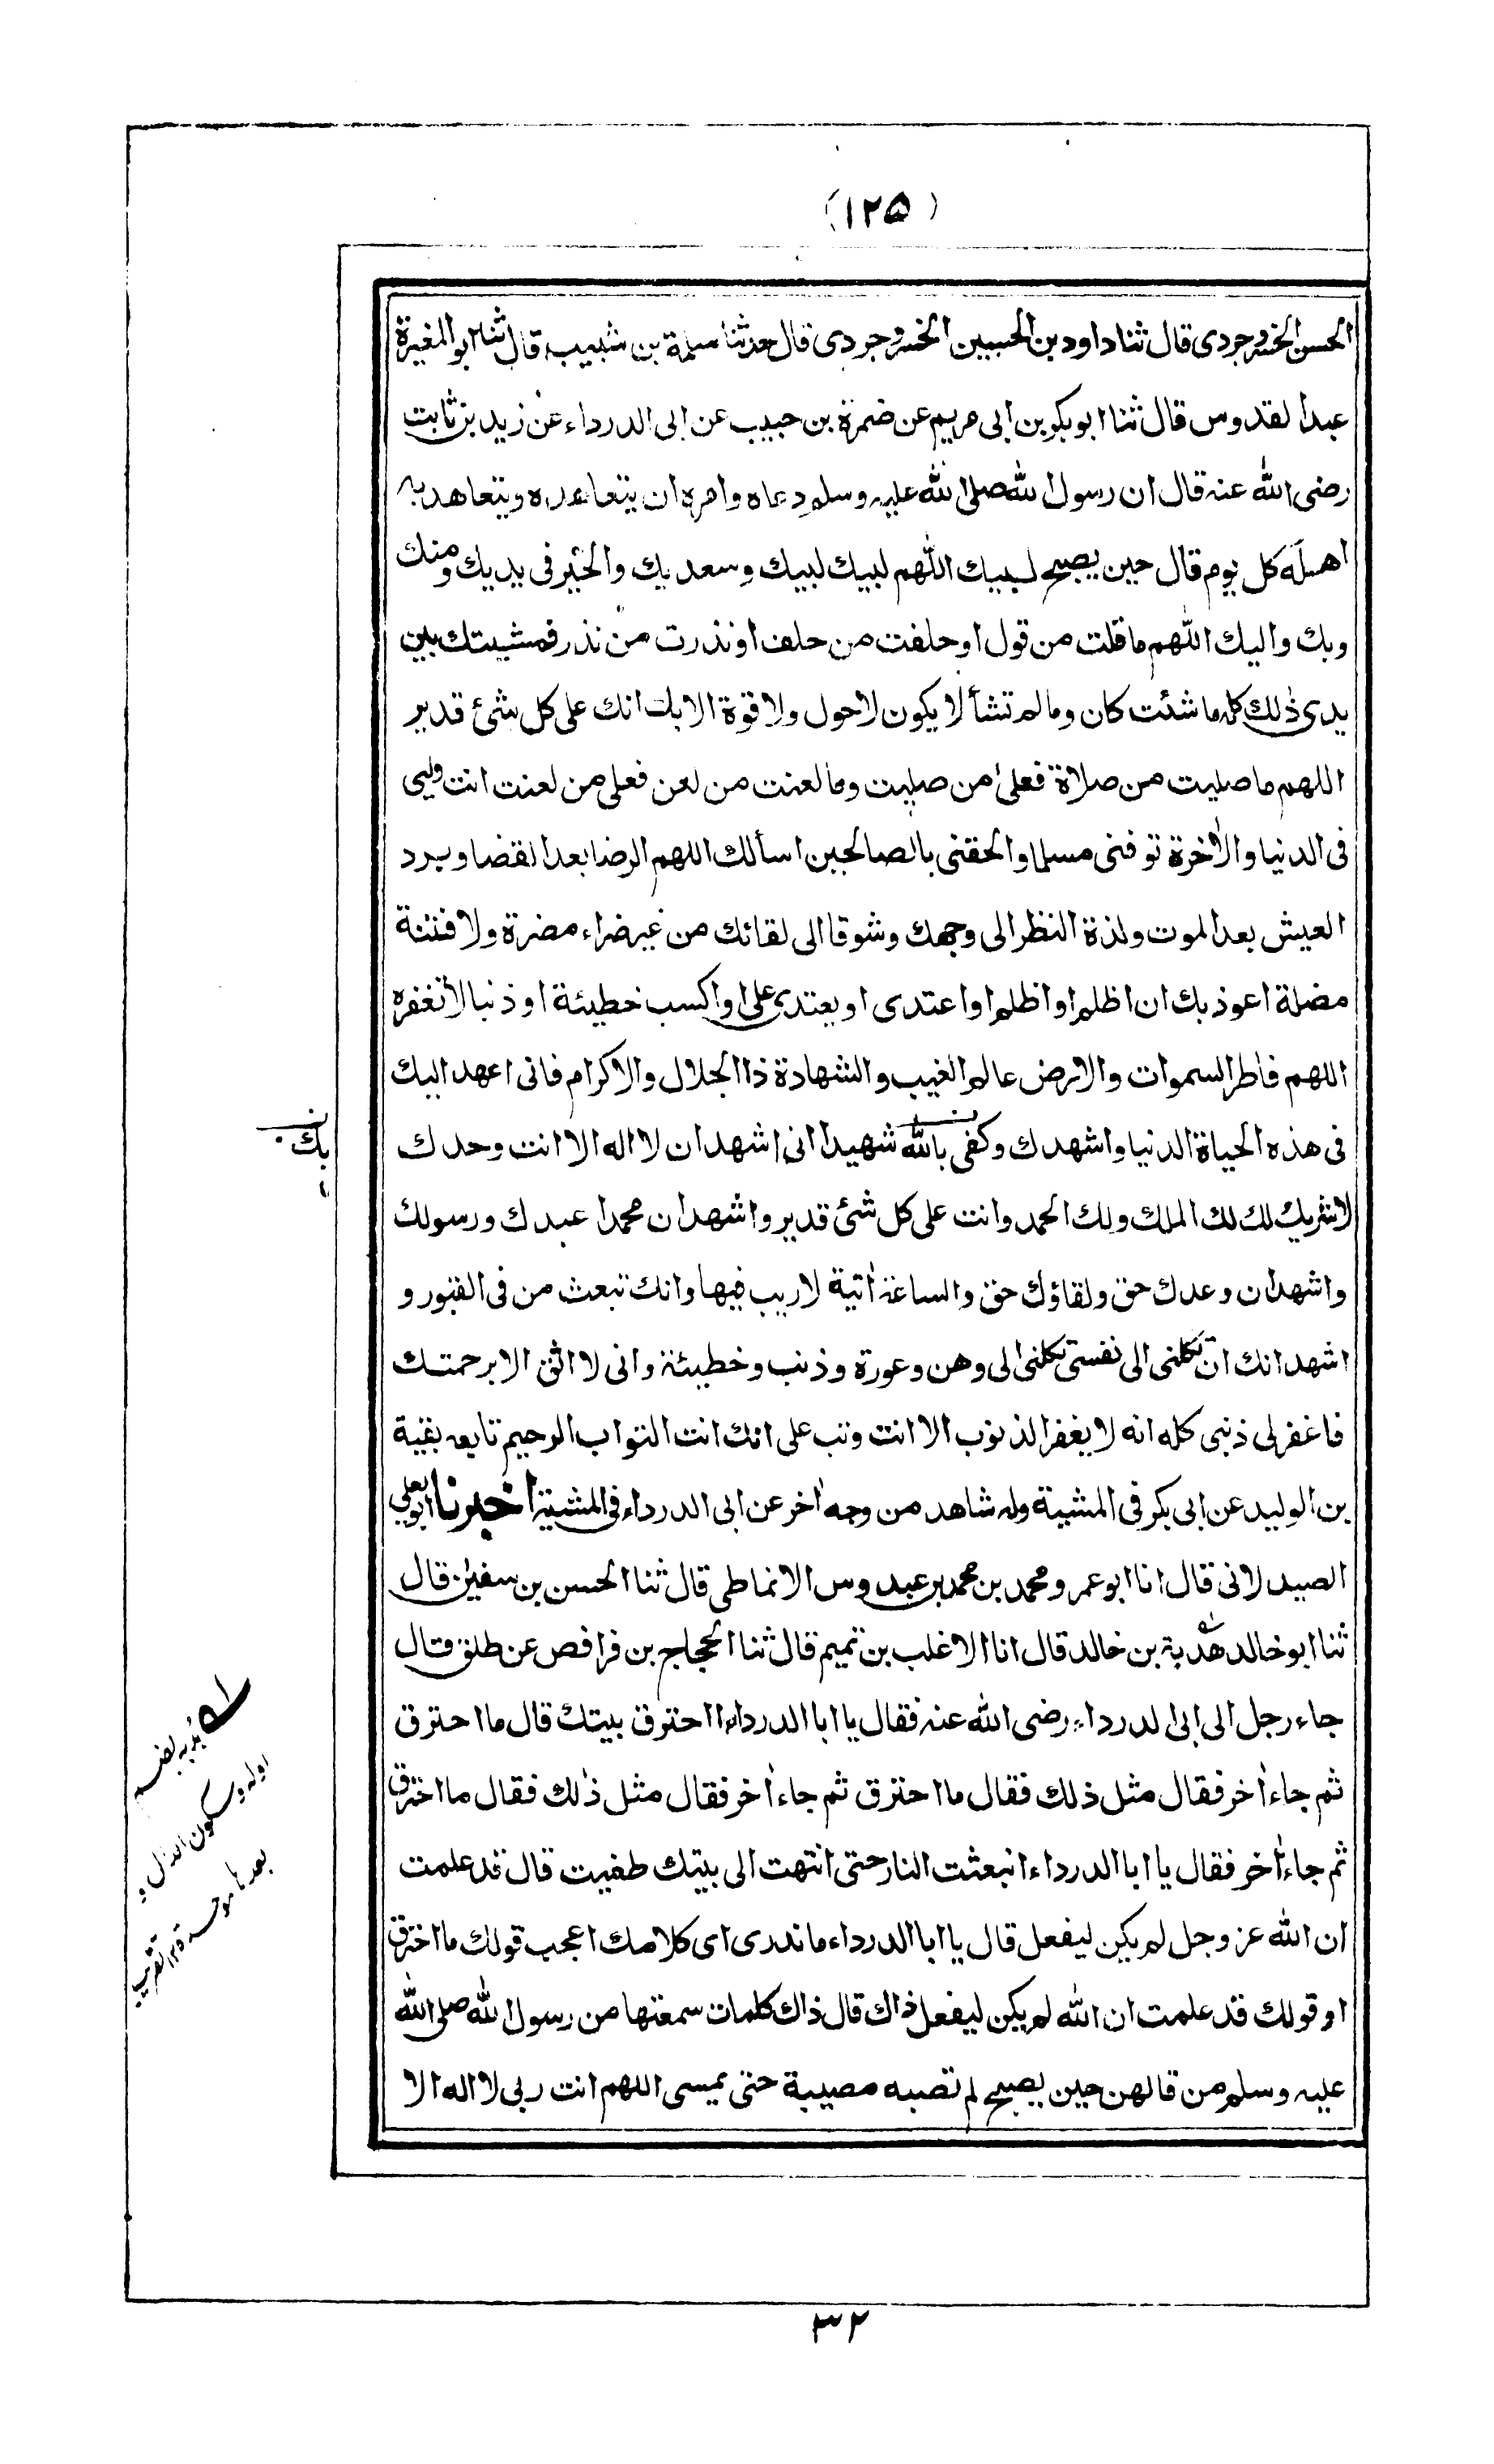 (١٢٥)
الحسن الخسروجردى قال ثنا داود بن الحسين الخسروجردى قال حدثنا سلمة بن شبيب قال ثنا ابو المغيرة
عبد القدوس قال ثنا ابو بكر بن ابى مريم عن ضمرة بن حبيب عن ابى الدرداء عن زيد بن ثابت
رضى الله عنه قال ان رسول الله صلى الله عليه وسلم دعاه وامره ان يتعاهده ويتعاهد به
اهله كل يوم قال حين يصبح لبيك اللهم لبيك لبيك وسعديك والخير فى يديك ومنك
وبك واليك اللهم ما قلت من قول او حلفت من حلف او نذرت من نذر فمشيتك بين
يدى ذلك كله ما شئت كان وما لم تشأ لا يكون لا حول ولا قوة الا بك انك على كل شئ قدير
اللهم ما صليت من صلاة فعلى من صليت وما لعنت من لعن فعلى من لعنت انت وليى
فى الدنيا والاخرة توفنى مسلما والحقنى بالصالحين اسألك اللهم الرضا بعد القضا وبرد
العيش بعد الموت ولذة النظر الى وجهك وشوقا الى لقائك من غير ضراء مضرة ولا فتنة
مضلة اعوذ بك ان اظلم او اظلم او اعتدى او يعتدى على او اكسب خطيئة او ذنبا لا تغفره
اللهم فاطر السموات والارض عالم الغيب والشهادة ذا الجلال والاكرام فانى اعهد اليك
فى هذه الحياة الدنيا واشهدك وكفى بالله شهيدا انى اشهد ان لا اله الا انت وحدك
بك
لا شريك لك لك الملك ولك الحمد وانت على كل شئ قدير واشهد ان محمدا عبدك ورسولك
واشهد ان وعدك حق ولقاؤك حق والساعة اتية لا ريب فيها وانك تبعث من فى القبور و
اشهد انك ان تكلنى الى نفسى تكلنى الى وهن وعورة وذنب وخطيئة وانى لا اثق الا برحمتك
فاغفر لى ذنبى كله انه لا يغفر الذنوب الا انت وتب على انك انت التواب الرحيم تابعه بقية
بن الوليد عن ابى بكر فى المشية وله شاهد من وجه اخر عن ابى الدرداء فى المشية اخبرنا ابو يعلى
الصيدلانى قال انا ابو عمر ومحمد بن محمد بن عبدوس الانماطى قال ثنا الحسن بن سفين قال
ثنا ابو خالد هدبة بن خالد قال انا الاغلب بن تميم قال ثنا الحجاج بن فرافص عن طلق قال
جاء رجل الى ابى الدرداء رضى الله عنه فقال يا ابا الدرداء احترق بيتك قال ما احترق
ثم جاء اخر فقال مثل ذلك فقال ما احترق ثم جاء اخر فقال مثل ذلك فقال ما احترق
ثم جاء اخر فقال يا ابا الدرداء انبعثت النار حتى انتهت الى بيتك طفيت قال قد علمت
ان الله عز وجل لم يكن ليفعل قال يا ابا الدرداء ما ندرى اى كلامك اعجب قولك ما احترق
او قولك قد علمت ان الله لم يكن ليفعل ذاك قال ذاك كلمات سمعتها من رسول الله صلى الله
عليه وسلم من قالهن حين يصبح لم تصبه مصيبة حتى يمسى اللهم انت ربى لا اله الا
هدبه بضم
اوله وسكون الدال
بعدها موحدة تقريب
٣٢